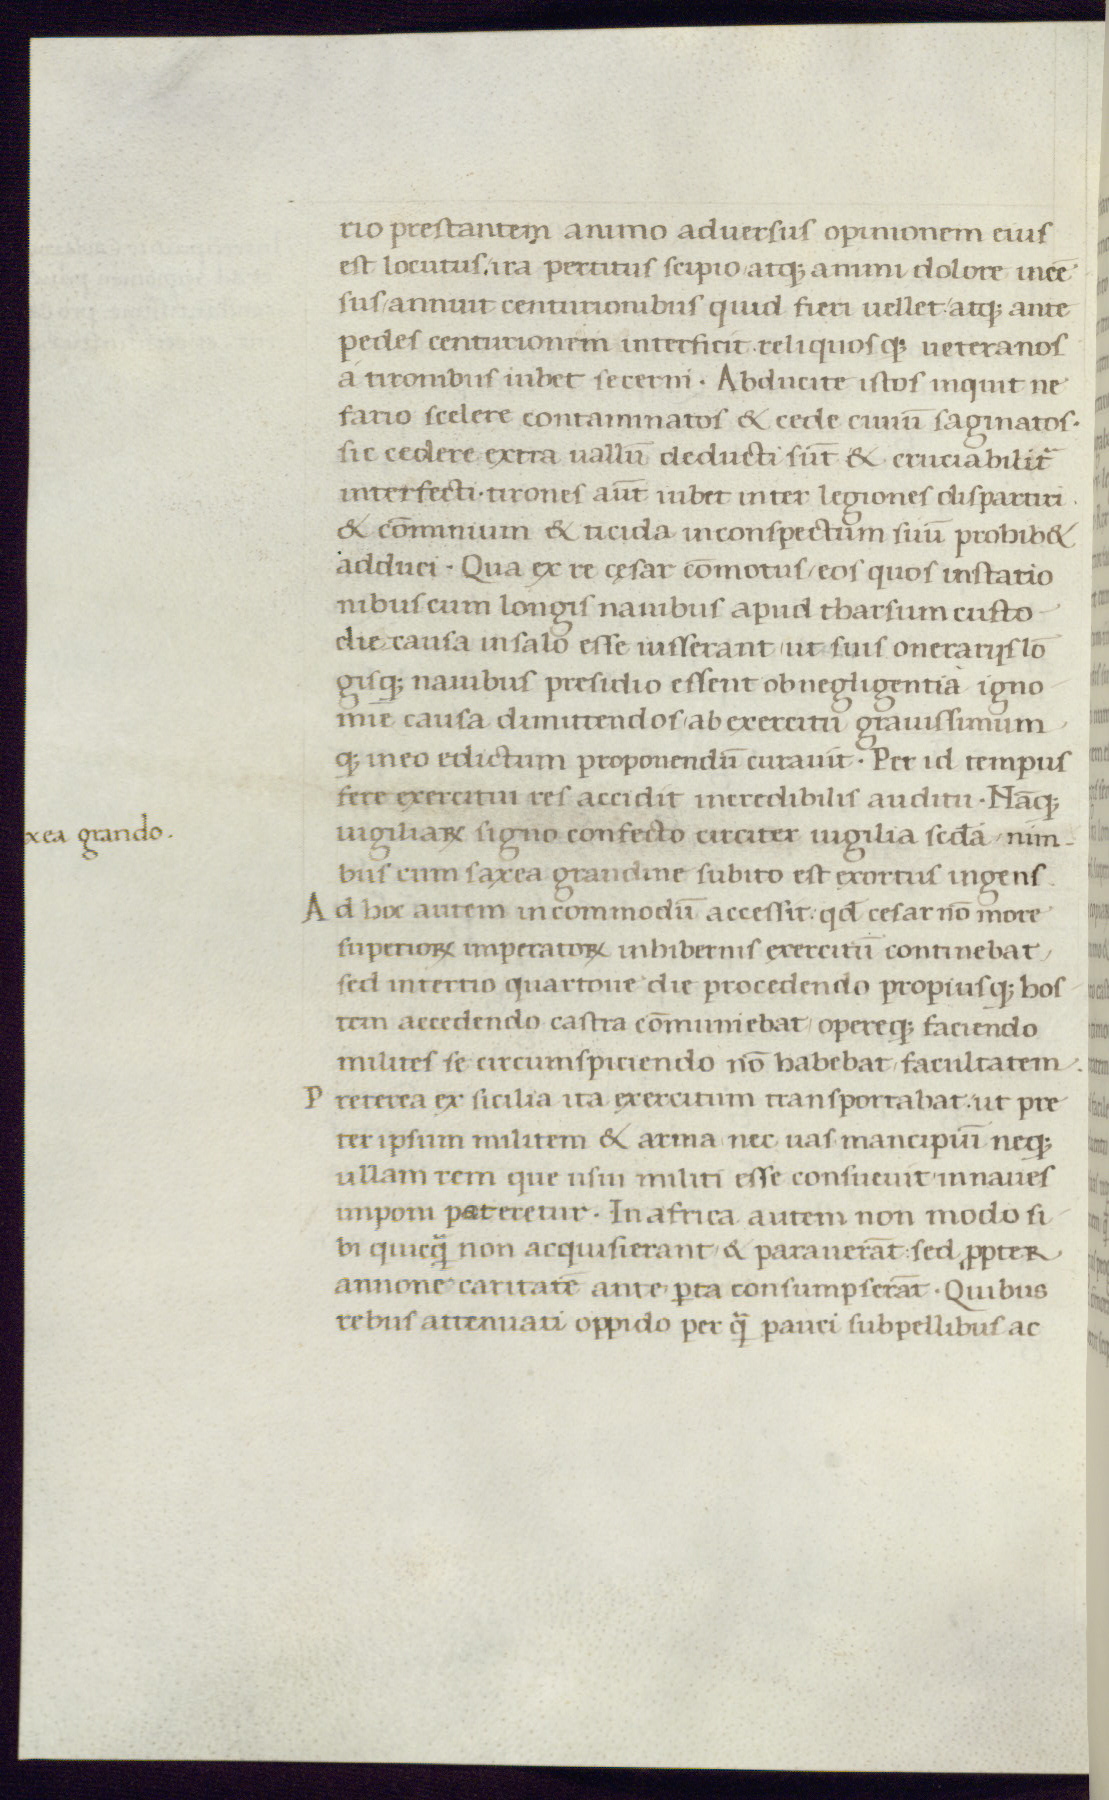 rio prestantem animo aduersus opinionem eius
est locutus, ira percitus scipio, atq; animi dolore incē
sus, annuit centurionibus quid fieri uellet, atq; ante
pedes centurionem interficit, reliquosq; ueteranos
a tironibus iubet secerni. Abducite istos inquit ne
fario scelere contaminatos & cede ciuiū saginatos.
sic cedere extra uallū deducti sūt & cruciabilit̄
interfecti. tirones aūt iubet inter legiones dispartiri.
& cōminium & ticida inconspectum suū prohib&
adduci. Qua ex re cęsar cōmotus, eos quos instatio
nibus cum longis nauibus apud tharsum custo
die causa insalo esse iusserant, ut suis onerarijs lō
gisq; nauibus presidio essent ob negligentiā igno
mīe causa dimittendos, ab exercitu grauissimum
q; in eo edictum proponendū curauit. Per id tempus
fere exercitui res accidit incredibilis auditu. Nāq;
xea grando.
uigiliaꝝ signo confecto circiter uigilia secda, nim-
bus cum saxea grandine subito est exortus ingens.
Ad hoc autem incommodū accessit: qđ cesar nō more
superioꝝ imperatoꝝ inhibernis exercitū continebat,
sed intertio quartoue die procedendo propiusq; hos
tem accedendo castra cōmuniebat, opereq; faciendo
milites se circumspiciendo nō habebat, facultatem.
Preterea ex sicilia ita exercitum transportabat, ut pre
ter ipsum militem & arma nec uas mancipiūi neq;
ullam rem que usui militi esse consueuit, innaues
imponi pateretur. In africa autem non modo si
bi quicq̄ non acquisierant, & parauerāt: sed ꝓpter
annone caritatē ante ꝑta consumpserāt. Quibus
rebus attenuati oppido per q̄ pauci subpellibus ac